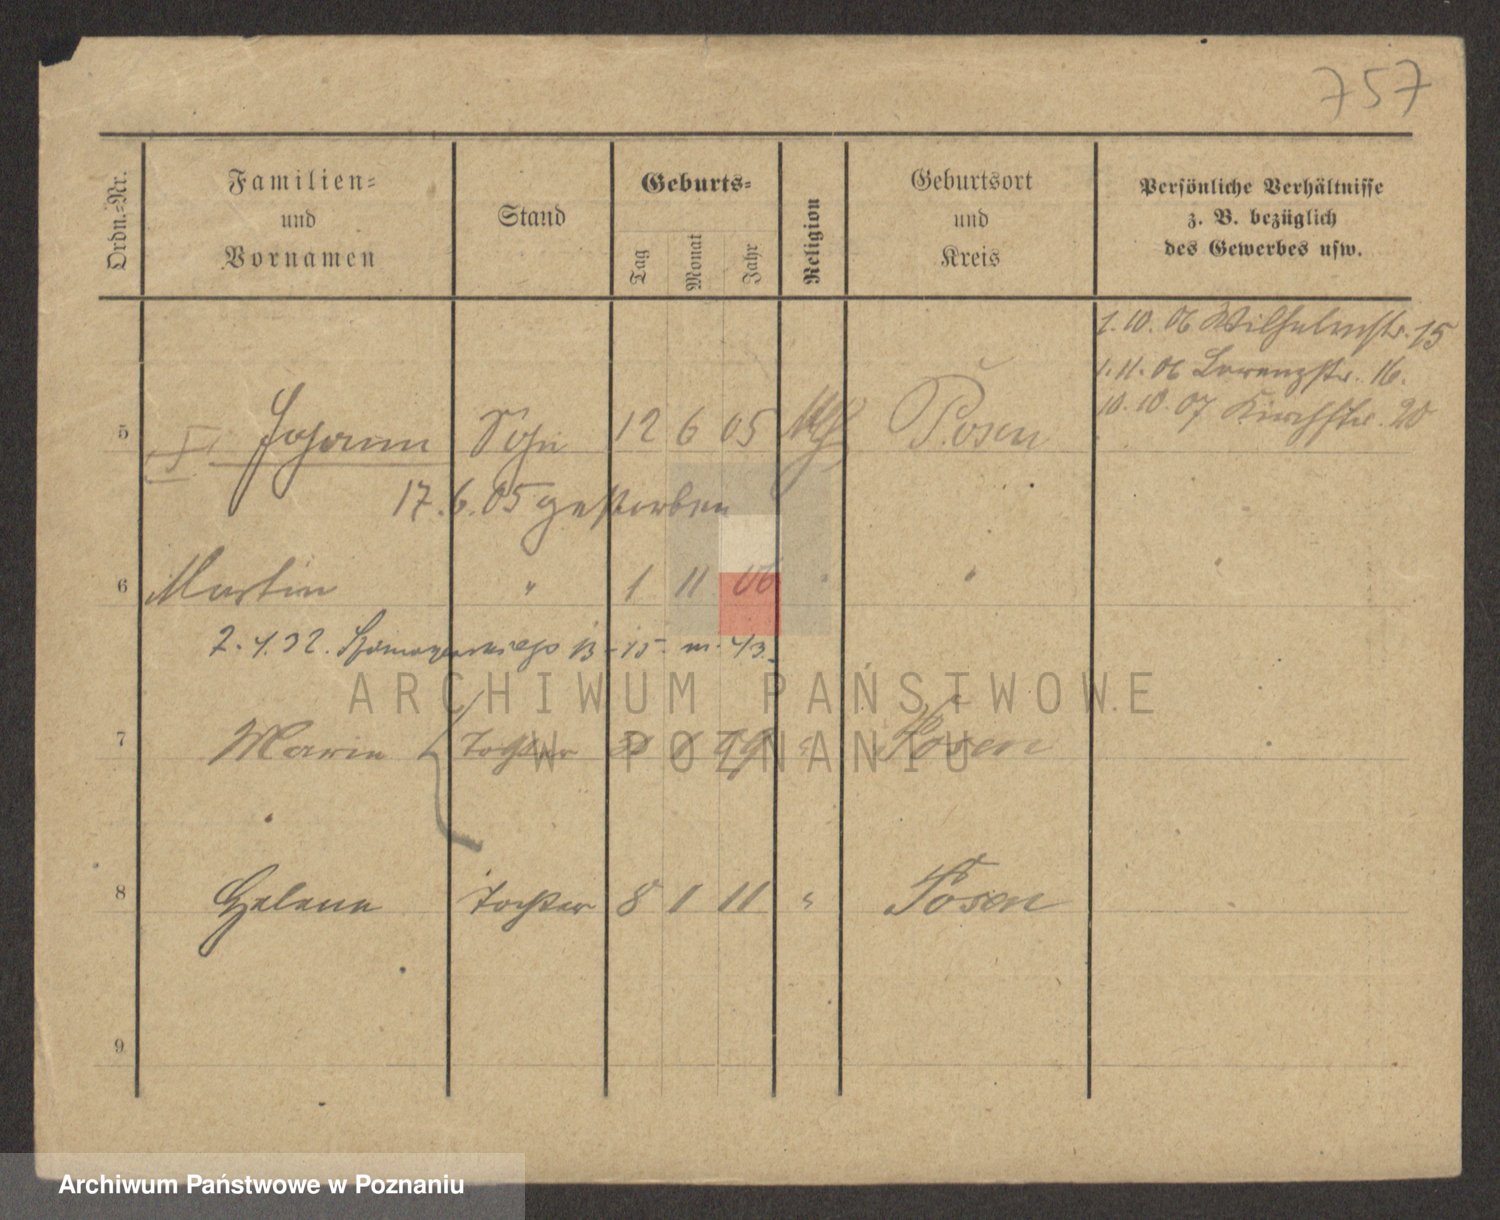 757
Ordn.-Nr.
Familien-
und
Vornamen
Stand
Geburts-
Tag
Monat
Jahr
Religion
Geburtsort
und
Kreis
Persönliche Verhältnisse
z. B. bezüglich
des Gewerbes usw.
1. 10. 06 Wilhelmstr. 15
1. 11. 06 Lorenzstr. 16.
10. 10. 07 Kirchstr. 20
5 Johann Sohn 12 6 05 Posen
17. 6. 05 gestorben
6 Martin " 1 11 06 " "
2. 4. 32.
7 Marie Tochter 1 99 " Posen
8 Helene Tochter 8 1 11 " Posen
9
ARCHIWUM PAŃSTWOWE
W POZNANIU
Archiwum Państwowe w Poznaniu